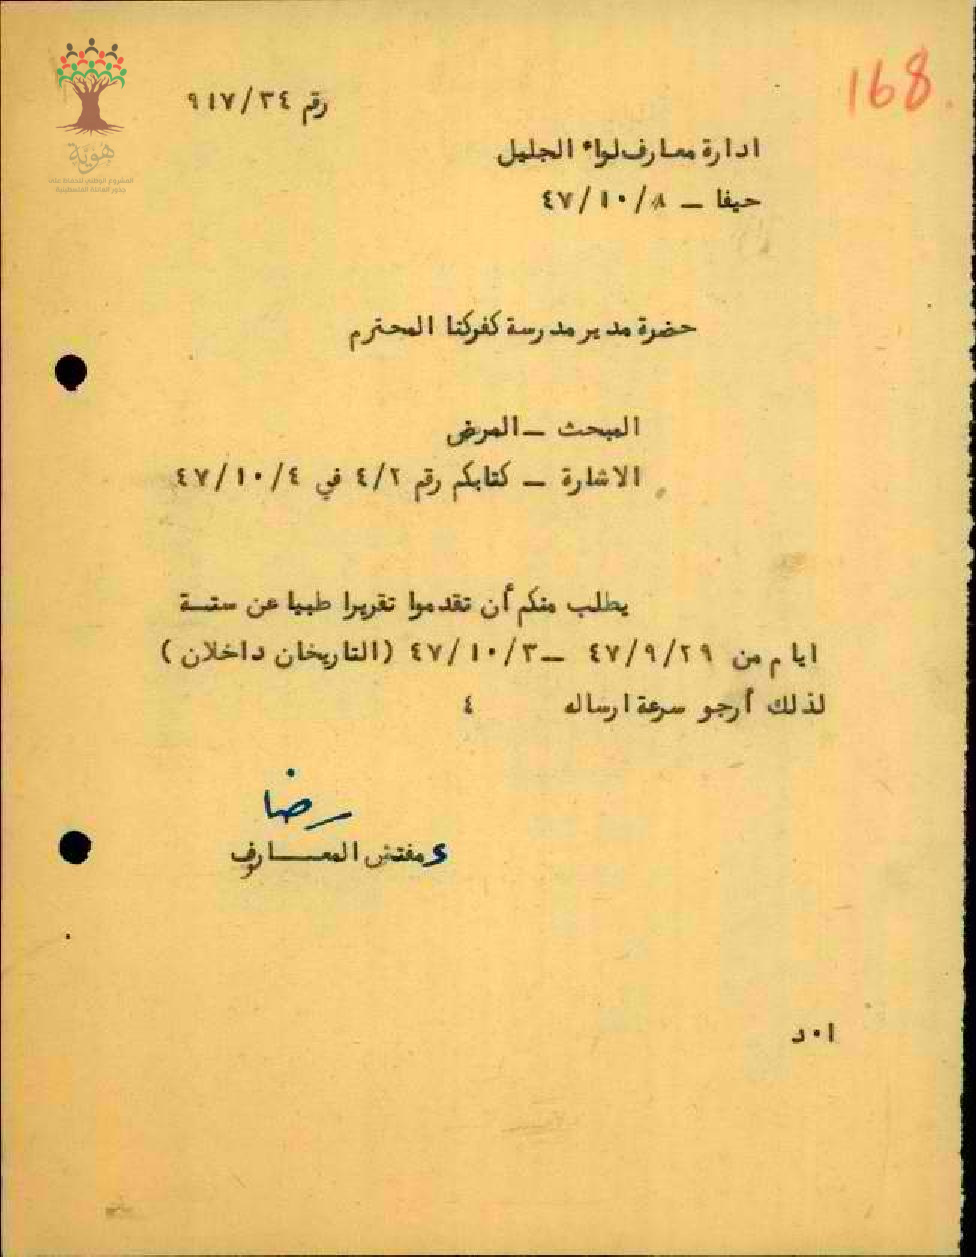 168.
هوية
المشروع الوطني للحفاظ على
جذور العائلة الفلسطينية
رقم ٩١٧/٣٤
ادارة معارف لواء الجليل
حيفا – ٤٧/١٠/٨
حضرة مدير مدرسة كفركنا المحترم
المبحث – المرض
الاشارة – كتابكم رقم ٤/٢ في ٤٧/١٠/٤
يطلب منكم أن تقدموا تقريرا طبيا عن ستة
ايام من ٤٧/٩/٢٩ – ٤٧/١٠/٣ (التاريخان داخلان)
لذلك أرجو سرعة ارساله ٤
رضا
ع مفتش المعارف
ا٠د